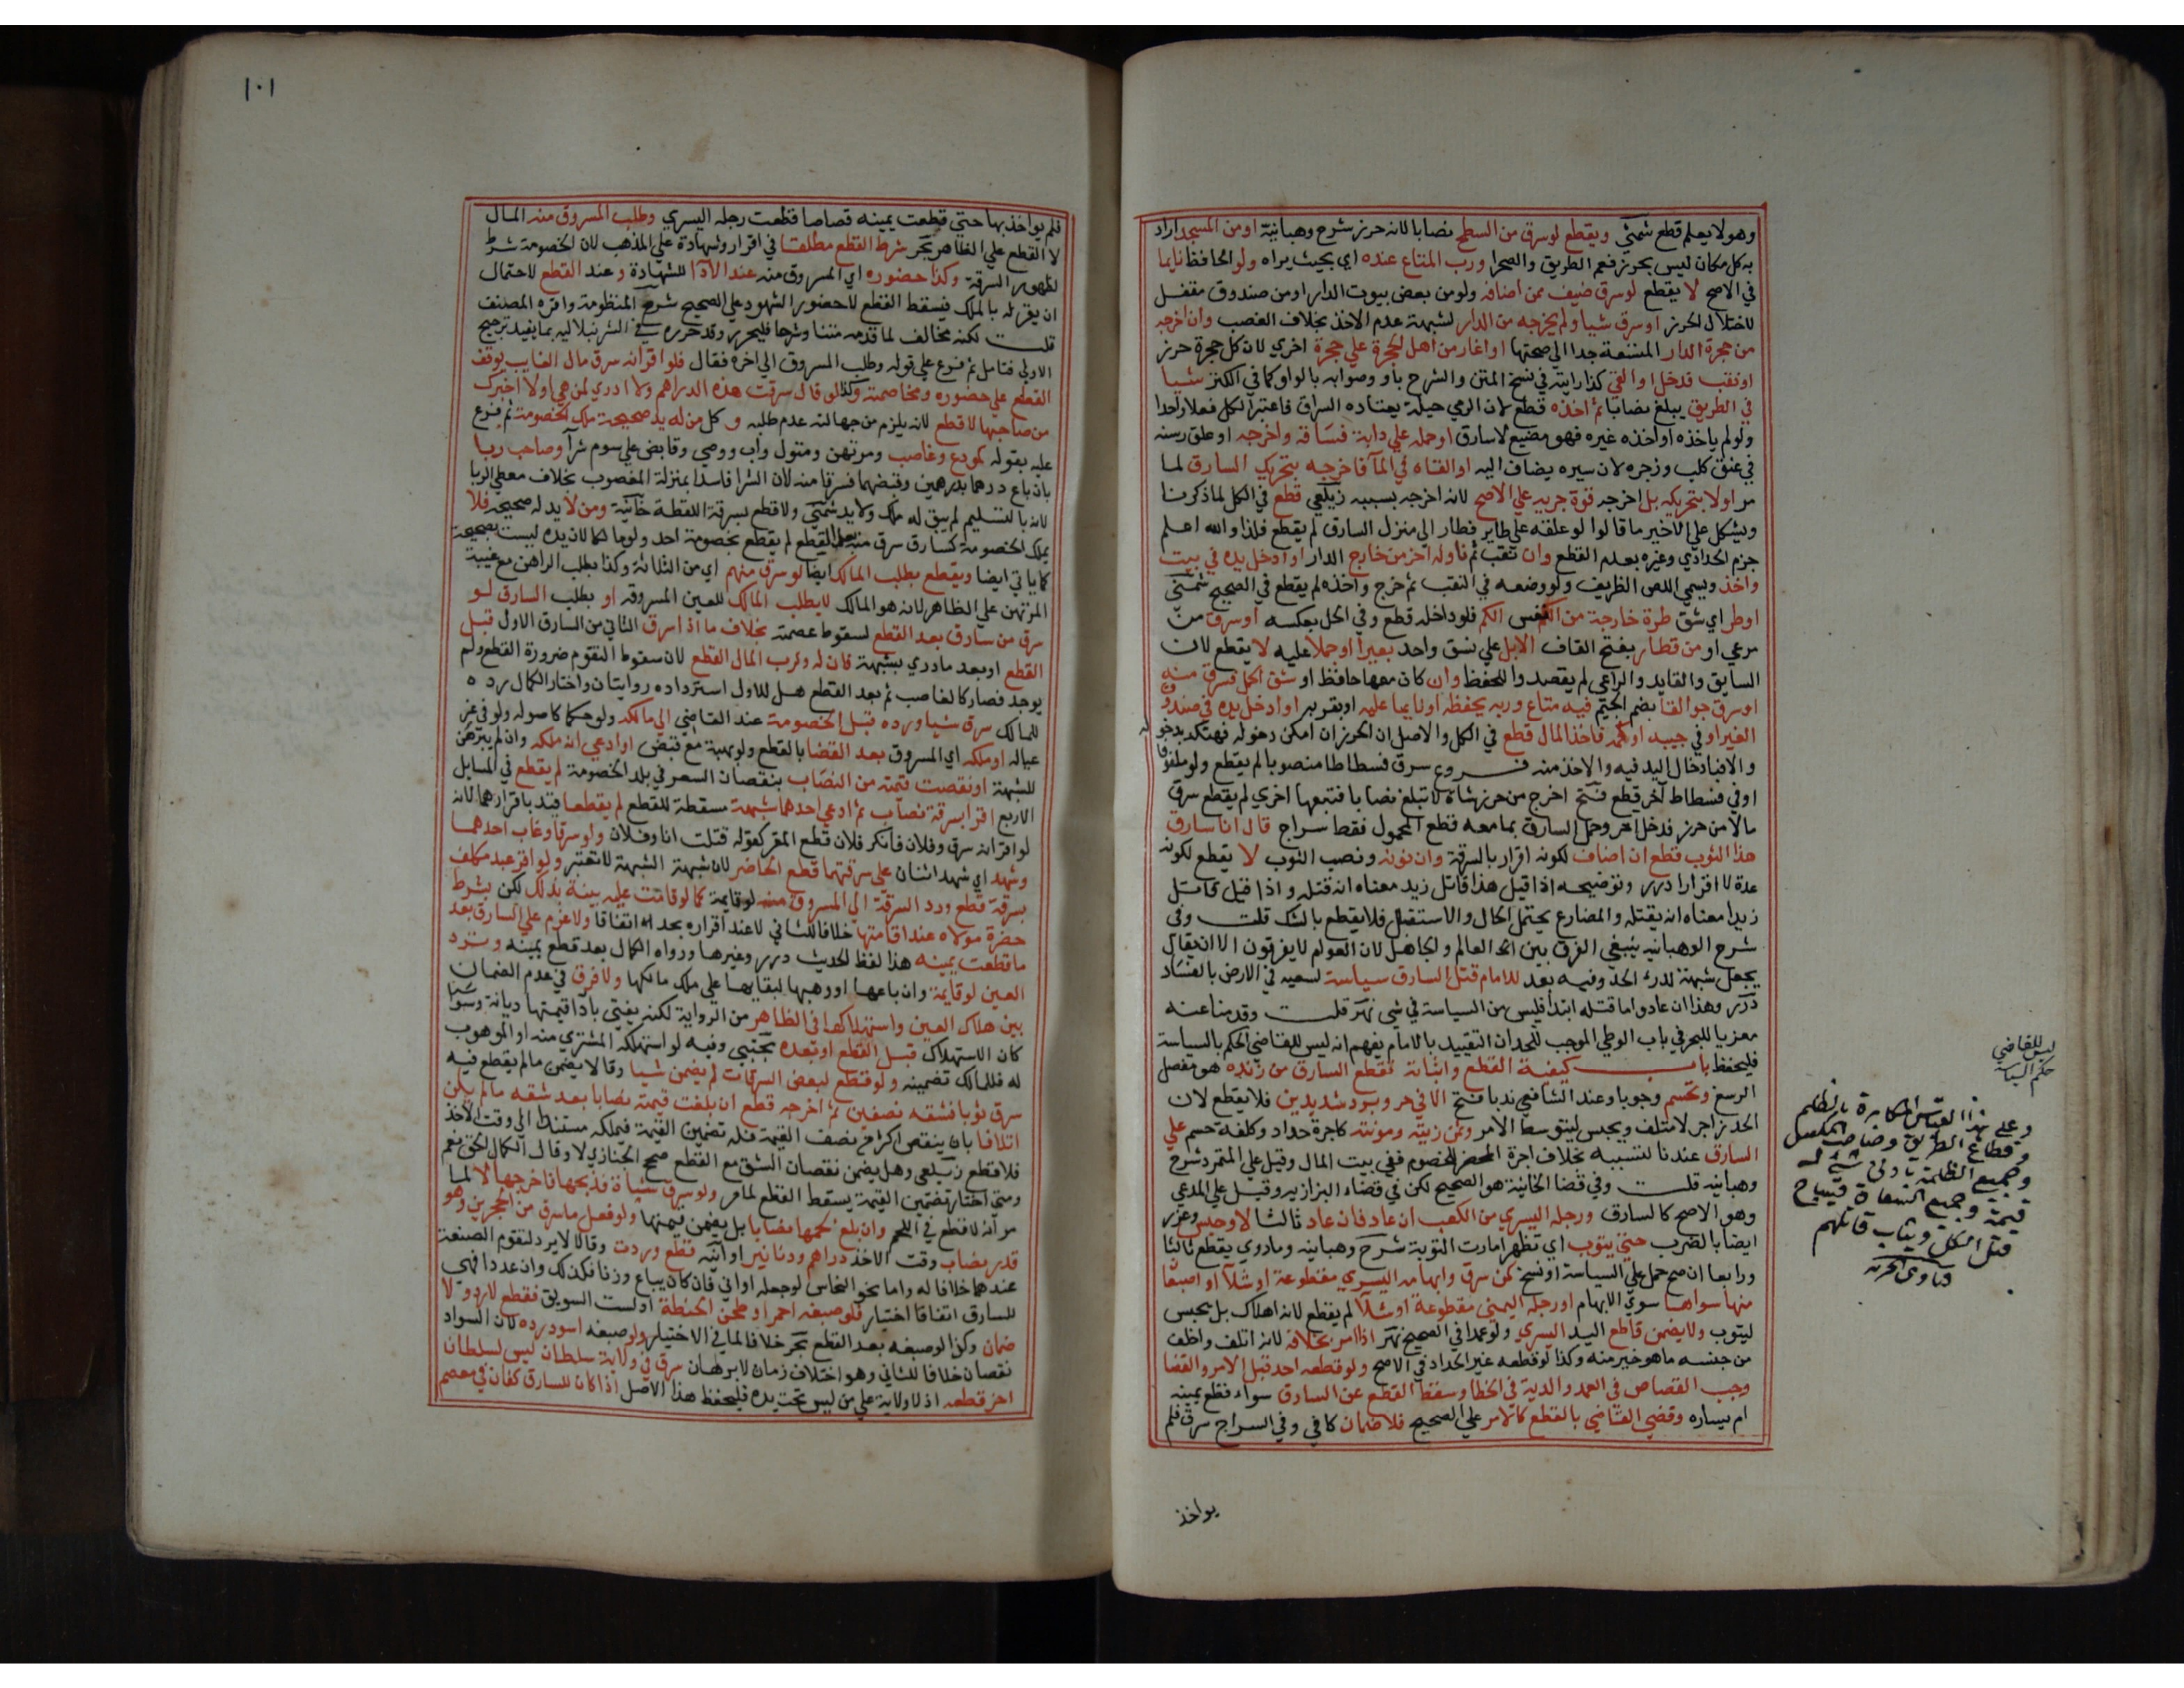 وهو لا يعلم قطع شمني ويقطع لو سرق من السطح نصابا لانه حرز شرح وهبانية او من المسجد اراد
به كل مكان ليس بحرز فعم الطريق والصحرا ورب المتاع عنده اي بحيث يراه ولو الحافظ نايما
في الاصح لا يقطع لو سرق ضيف ممن اضافه ولو من بعض بيوت الدار او من صندوق مقفل
لاختلال الحرز او سرق شيا ولم يخرجه من الدار لشبهة عدم الاخذ بخلاف الغصب وان اخرجه
من حجرة الدار المتسعة جدا الي صحنها او اغار من اهل الحجرة علي حجرة اخري لان كل حجرة حرز
او نقب فدخل او القي كذا رايته في نسخ المتن والشرح باو وصوابه بالواو كما في الكنز شيا
في الطريق يبلغ نصابا ثم اخذه قطع لان الرمي حيلة يعتاده السراق فاعتبر الكل فعلا واحدا
ولو لم ياخذه او اخذه غيره فهو مضيع لا سارق او حمله علي دابة فساقه واخرجه او علق رسنه
في عنق كلب وزجره لان سيره يضاف اليه او القاه في المآ فاخرجه بتحريك السارق لما
مر اولا بتحريكه بل اخرجه قوة جريه علي الاصح لانه اخرجه بسببه زيلعي قطع في الكل لما ذكرنا
ويشكل علي الاخير ما قالوا لو علقه علي طاير فطار الي منزل السارق لم يقطع فلذا والله اعلم
جزم الحدادي وغيره بعدم القطع وان نقب ثم ناوله اخر من خارج الدار او ادخل يده في بيت
واخذ ويسمي اللص الظريف ولو وضعه في النقب ثم خرج واخذه لم يقطع في الصحيح شمني
او طر اي شق طرة خارجة من نفس الكم فلو داخله قطع وفي الحل بعكسه او سرق من
مرعي او من قطار بفتح القاف الابل علي نسق واحد بعيرا او حملا عليه لا يقطع لان
السايق والقايد والراعي لم يقصدوا للحفظ وان كان معها حافظ او شق الحمل فسرق منه
او سرق جوالقا بضم الجيم فيه متاع وربه يحفظه او نايما عليه او بقربه او ادخل يده في صندوق
الغير او في جيبه او كمه فاخذ المال قطع في الكل والاصل ان الحرز ان امكن دخوله فهتكه بدخوله
والا فبادخال اليد فيه والاخذ منه فروع سرق فسطاطا منصوبا لم يقطع ولو ملفوفا
او في فسطاط آخر قطع فتح اخرج من حرز شاة لا تبلغ نصابا فتبعها اخري لم يقطع سرق
مالا من حرز فدخل اخر وحمل السارق بما معه قطع المحمول فقط سراج قال انا سارق
هذا الثوب قطع ان اضاف لكونه اقرار بالسرقة وان نونه ونصب الثوب لا يقطع لكونه
عدة لا اقرارا درر وتوضيحه اذا قيل هذا قاتل زيد معناه انه قتله واذا قيل قاتل
زيدا معناه انه يقتله والمضارع يحتمل الحال والاستقبال فلا يقطع بالشك قلت وفي
شرح الوهبانيه ينبغي الفرق بين العالم والجاهل لان العوام لا يفرقون الا ان يقال
يجعل شبهة لدرء الحد وفيه بعد للامام قتل السارق سياسة لسعيه في الارض بالفساد
درر وهذا ان عاد واما قتله ابتدا فليس من السياسة في شي نهر قلت وقدمنا عنه
معزيا للبحر في باب الوطي الموجب للحد ان التقييد بالامام يفهم انه ليس للقاضي الحكم بالسياسة
فليحفظ باب كيفية القطع واثباته تقطع السارق من زنده هو مفصل
الرسغ وتحسم وجوبا وعند الشافعي ندبا فتح الا في حر وبرد شديدين فلا يقطع لان
الحد زاجر لا متلف ويحبس ليتوسط الامر وثمن زيته ومونته كاجرة حداد وكلفة حسم علي
السارق عندنا لتسببه بخلاف اجرة المحضر للخصوم ففي بيت المال وقيل علي المتمرد شرح
وهبانيه قلت وفي قضا الخانية هو الصحيح لكن في قضاء البزازيه وقيل علي المدعي
وهو الاصح كالسارق ورجله اليسري من الكعب ان عاد فان عاد ثالثا لا وحبس وعزر
ايضا بالضرب حتي يتوب اي تظهر امارت التوبة شرح وهبانيه وما روي يقطع ثالثا
ورابعا ان صح حمل علي السياسة او نسخ كمن سرق وابهامه اليسري مقطوعة او شلآ او اصبعا
منها سواها سوي الابهام او رجله اليمني مقطوعة او شلآ لم يقطع لانه اهلاك بل يحبس
ليتوب ولا يضمن قاطع اليد اليسري ولو عمدا في الصحيح نهر اذا امر بخلافه لانه اتلف واخلف
من جنسه ما هو خير منه وكذا لو قطعه غير الحداد في الاصح ولو قطعه احد قبل الامر والقضا
وجب القصاص في العمد والدية في الخطا وسقط القطع عن السارق سواء قطع يمينه
ام يساره وقضي القاضي بالقطع كالامر علي الصحيح فلا ضمان كافي وفي السراج سرق فلم
يواخذ
ليس للقاضي
حكم السياسة
وعلي هذا القياس المكابرة بالظلم
وقطاع الطريق وصاحب المكس
وجميع الظلمة بادني شي له
قيمة وجميع السعاة فيباح
قتل الكل ويثاب قاتلهم
١٠١
فلم يواخذ بها حتي قطعت يمينه قصاصا قطعت رجله اليسري وطلب المسروق منه المال
لا القطع علي الظاهر بحر شرط القطع مطلقا في اقرار وشهادة علي المذهب لان الخصومة شرط
لظهور السرقة وكذا حضوره اي المسروق منه عند الادآ للشهادة وعند القطع لاحتمال
ان يقر له بالملك فيسقط القطع لا حضور الشهود علي الصحيح شرح المنظومة واقره المصنف
قلت لكنه مخالف لما قدمه متنا وشرحا فليحرر وقد حرره في الشرنبلاليه بما يفيد ترجيح
الاول فتامل ثم فرع علي قوله وطلب المسروق الي اخره فقال فلو اقر انه سرق مال الغايب توقف
القطع علي حضوره ومخاصمته وكذا لو قال سرقت هذه الدراهم ولا ادري لمن هي او لا اخبرك
من صاحبها لا قطع لانه يلزم من جهالته عدم طلبه و كل من له يد صحيحة ملك الخصومة ثم فرع
عليه بقوله كمودع وغاصب ومرتهن ومتول واب ووصي وقابض علي سوم شرآ وصاحب ربا
بان باع درهما بدرهمين وقبضهما فسرقا منه لان الشرا فاسدا بمنزلة المغصوب بخلاف معطي الربا
لانه بالتسليم لم يبق له ملك ولا يد شمني ولا قطع بسرقة اللقطة خانية ومن لا يد له صحيحة فلا
يملك الخصومة كسارق سرق منه بعد القطع لم يقطع بخصومة احد ولو مالكا لان يده ليست بصحيحة
كما ياتي ايضا ويقطع بطلب المالك ايضا لو سرق منهم اي من الثلاثة وكذا بطلب الراهن مع غيبة
المرتهن علي الظاهر لانه هو المالك لا بطلب المالك للعين المسروقه او بطلب السارق لو
سرق من سارق بعد القطع لسقوط عصمته بخلاف ما اذا سرق الثاني من السارق الاول قبل
القطع او بعد ما دري بشبهة فان له ولرب المال القطع لان سقوط التقوم ضرورة القطع ولم
يوجد فصار كالغاصب ثم بعد القطع هل للاول استرداده روايتان واختار الكمال رده
للمالك سرق شيا ورده قبل الخصومة عند القاضي الي مالكه ولو حكما كاصوله ولو في غير
عياله او ملكه اي المسروق بعد القضا بالقطع ولو بهبة مع قبض او ادعي انه ملكه وان لم يبرهن
للشبهة او نقصت قيمته من النصاب بنقصان السعر في بلد الخصومة لم يقطع في المسايل
الاربع اقرا بسرقة نصاب ثم ادعي احدهما شبهة مسقطة للقطع لم يقطعا قيد باقرارهما لانه
لو اقر انه سرق وفلان فانكر فلان قطع المقر كقوله قتلت انا وفلان ولو سرقا وغاب احدهما
وشهد اي شهد اثنان علي سرقتهما قطع الحاضر لان شبهة الشبهة لا تعتبر ولو اقر عبد مكلف
بسرقة قطع ورد السرقة الي المسروق منه لو قايمة كما لو قامت عليه بينة بذلك لكن بشرط
حضرة مولاه عند اقامتها خلافا للثاني لا عند اقراره بحد اتفاقا ولا غرم علي السارق بعد
ما قطعت يمينه هذا لفظ الحديث درر وغيرها ورواه الكمال بعد قطع يمينه وترد
العين لو قايمة وان باعها او وهبها لبقايها علي ملك مالكها ولا فرق في عدم الضمان
بين هلاك العين واستهلاكها في الظاهر من الرواية لكنه يفتي بادآ قيمتها ديانة وسوا
كان الاستهلاك قبل القطع او بعده مجتبي وفيه لو استهلكه المشتري منه او الموهوب
له فللمالك تضمينه ولو قطع لبعض السرقات لم يضمن شيا وقالا يضمن ما لم يقطع فيه
سرق ثوبا فشقه نصفين ثم اخرجه قطع ان بلغت قيمته نصابا بعد شقه ما لم يكن
اتلافا بان ينقص اكثر من نصف القيمة فله تضمين القيمة فيملكه مستندا الي وقت الاخذ
فلا قطع زيلعي وهل يضمن نقصان الشق مع القطع صحح الخبازي لا وقال الكمال الحق نعم
ومتي اختار تضمين القيمة يسقط القطع لما مر ولو سرق شاة فذبحها فاخرجها لا لما
مر انه لا قطع في اللحم وان بلغ لحمها نصابا بل يضمن قيمتها ولو فعل ما سرق من الحجرين وهو
قدر نصاب وقت الاخذ دراهم ودنانير او آنية قطع وردت وقالا لا يرد لتقوم الصنعة
عندهما خلافا له واما نحو النحاس لو جعله اواني فان كان يباع وزنا فكذلك وان عددا فهي
للسارق اتفاقا اختيار فلو صبغه احمر او طحن الحنطة او لت السويق فقطع لا رد ولا
ضمان وكذا لو صبغه بعد القطع بحر خلافا لما في الاختيار ولو صبغه اسود رده لان السواد
نقصان خلافا للثاني وهو اختلاف زمان لا برهان سرق في ولاية سلطان ليس لسلطان
اخر قطعه اذ لا ولاية علي من ليس تحت يده فليحفظ هذا الاصل اذا كان للسارق كفان في معصم